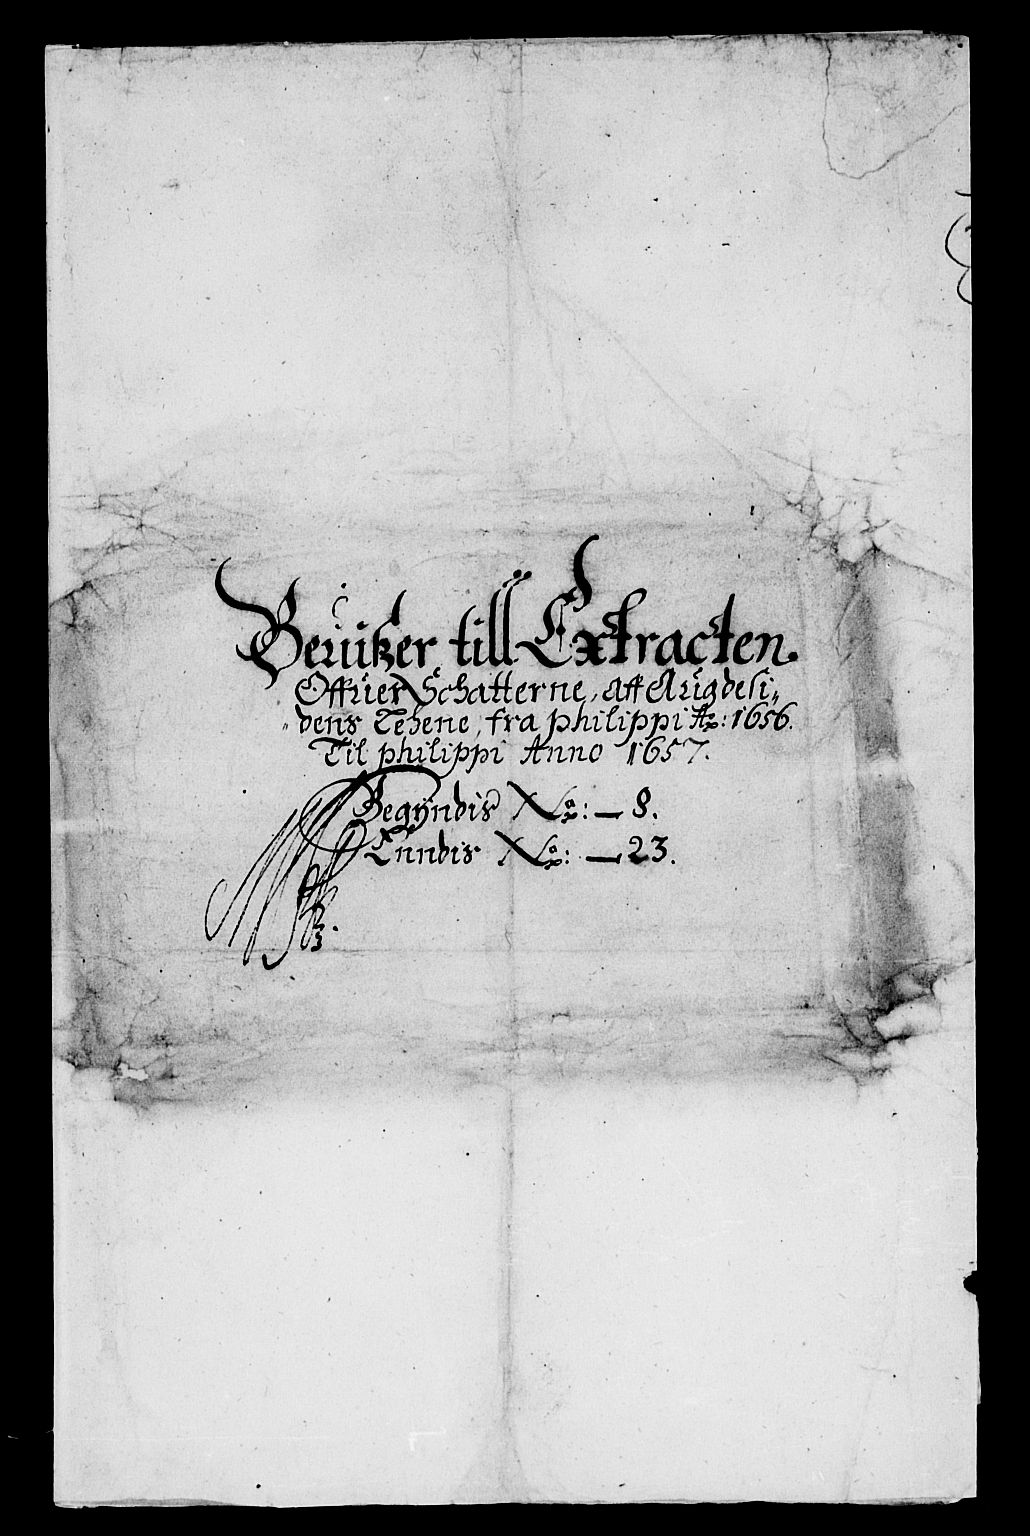 Beuiißer till Extracten
Offuer Schatterne, aff Augdesi„
„dens Lehene, fra philippi Aō: 1656.
Til philippi Anno 1657.
Begÿndis Nō: — 8.
Enndis Nō: — 23.